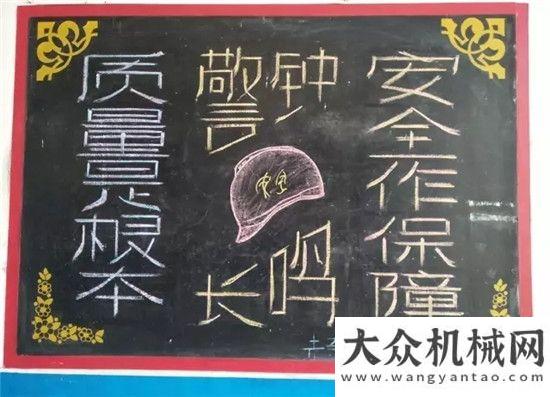 质量是根本
警钟
安全
长鸣
安全作保障
大众机械网
www.wangyantao.com